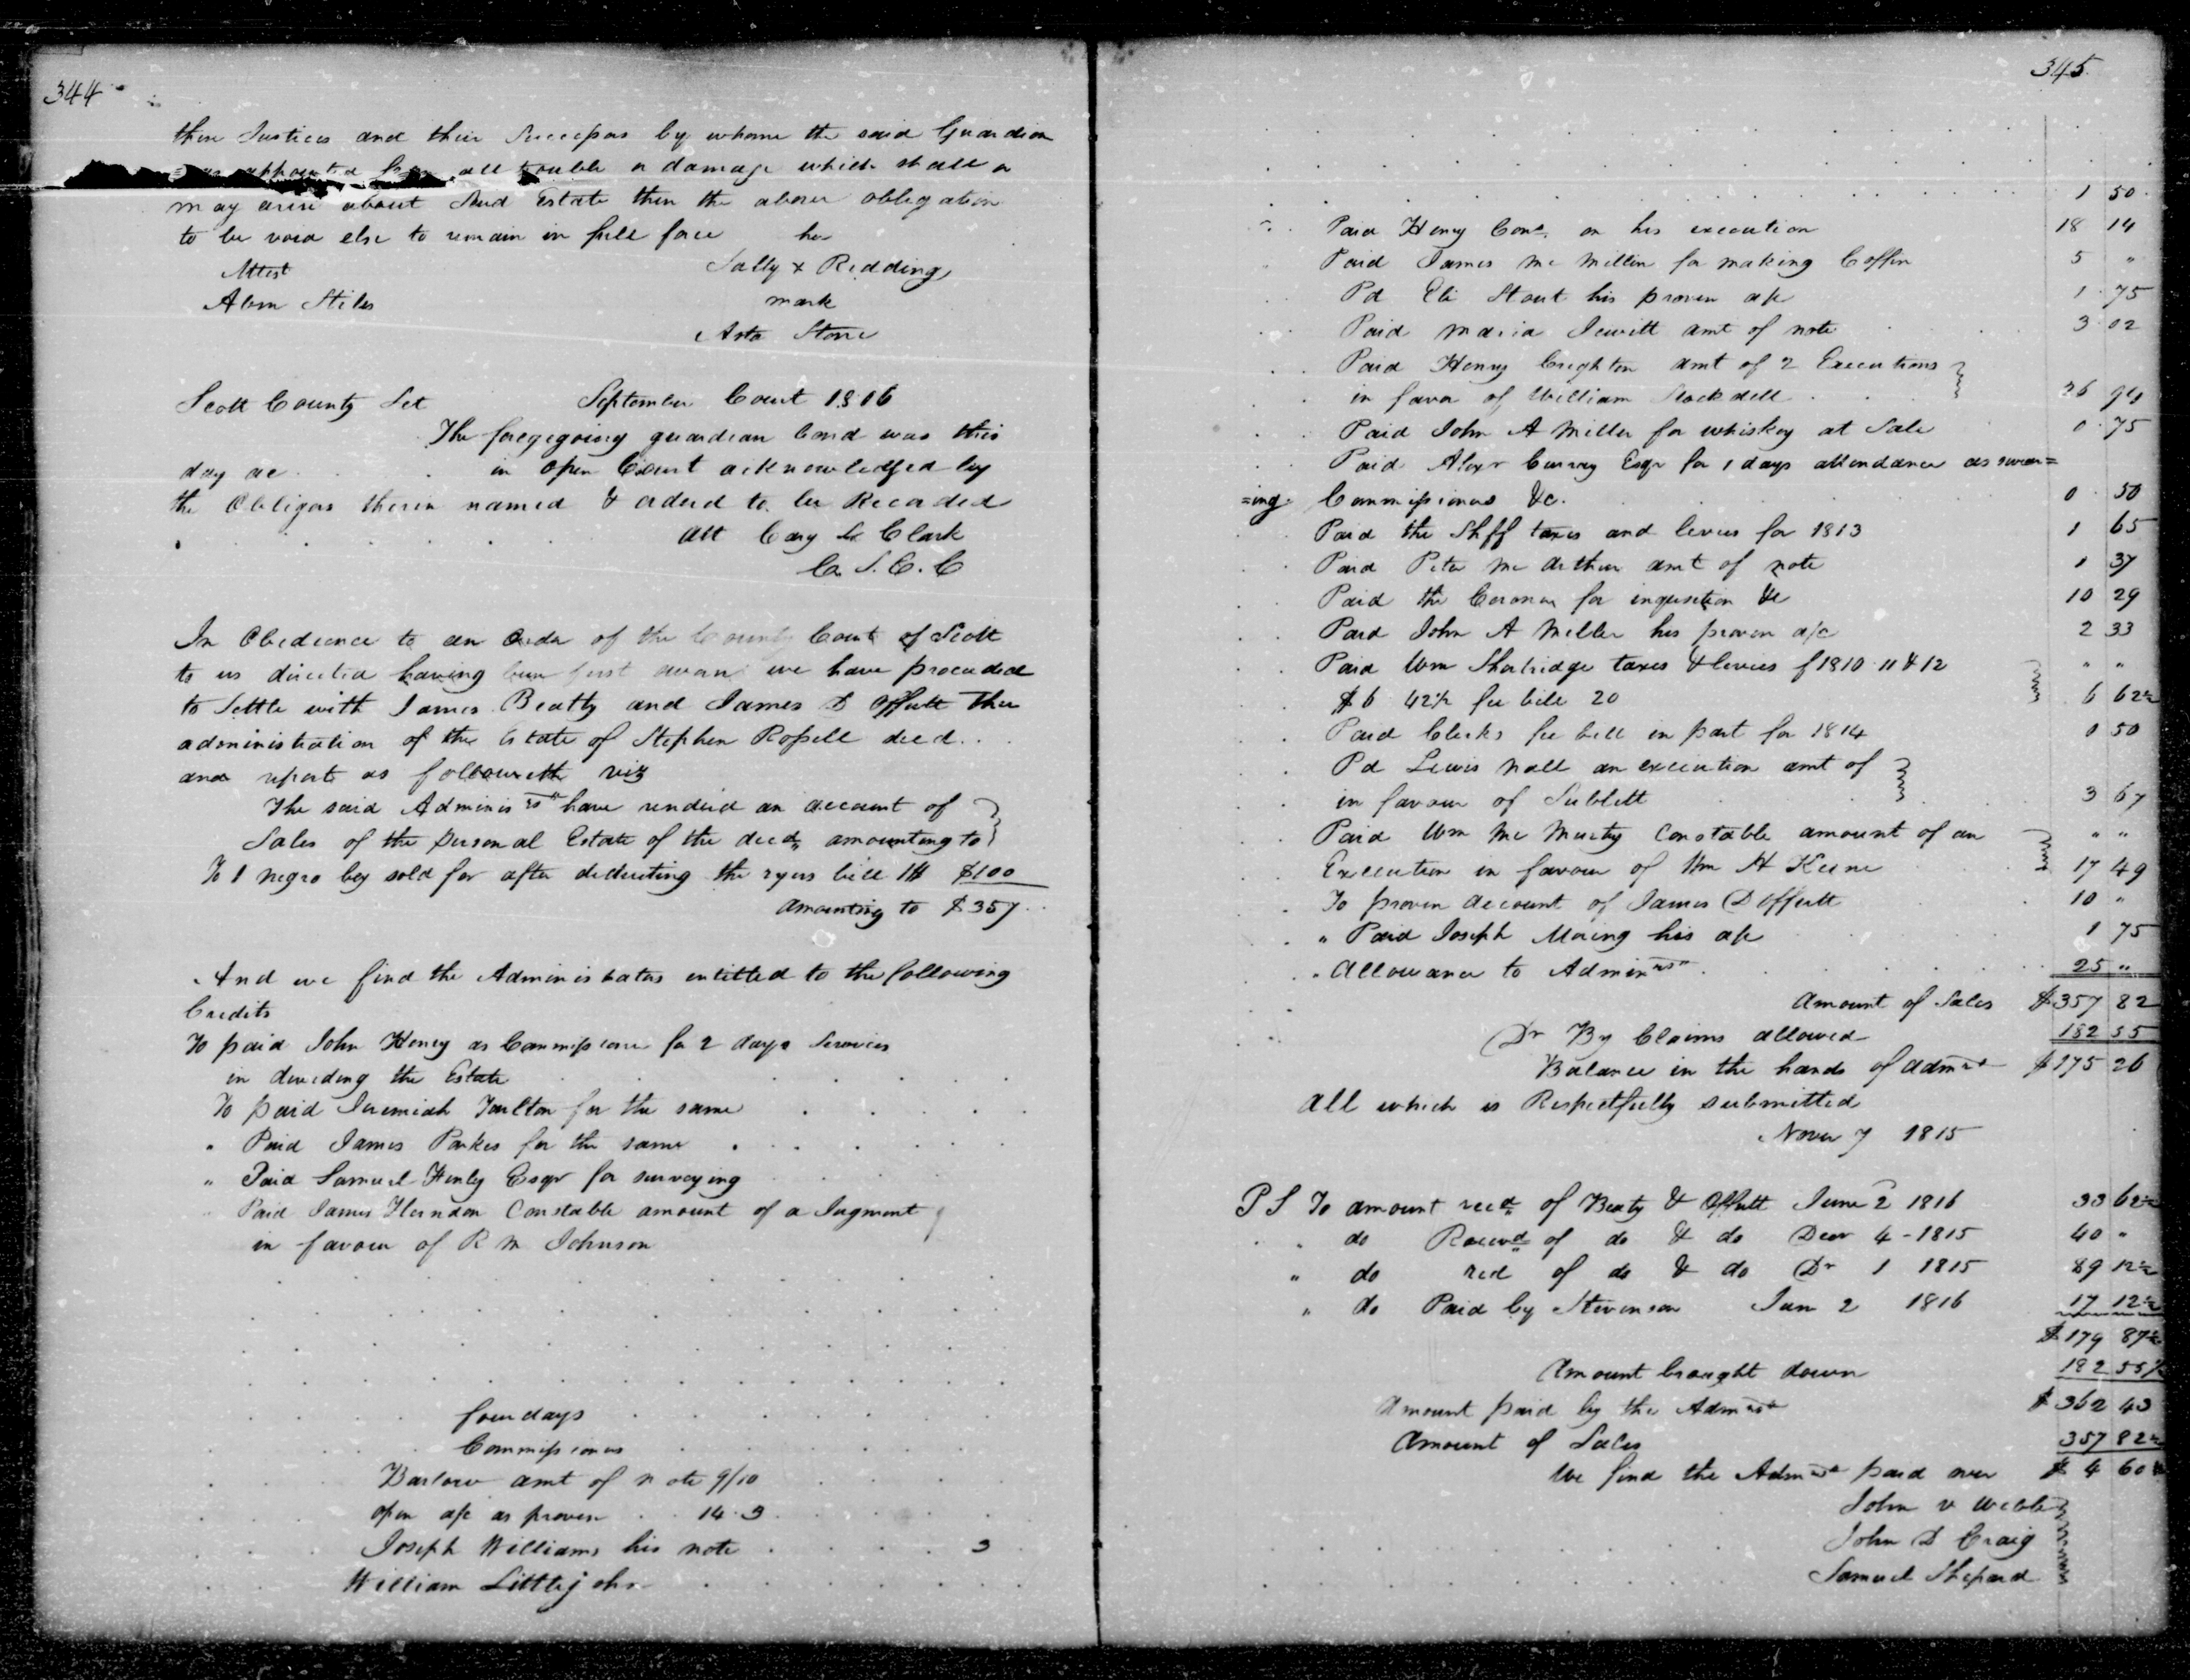 344
then Justices and their Successors by whome the said Guardian
was appointed from all trouble or damage which shall or
may arise about Said Estate then the above obligation
to be void else to remain in full force her
Attest Sally x Redding
Abm Stiles mark
Asa Stone
Scott County Sct September Court 1816
The foregoing guardian bond was this
day ac in open Court acknowledged by
the Obligors therein named & orderd to be Recorded
att Cary L Clark
C. S. C. C
In Obedience to an Order of the County Court of Scott
to us directed having been first sworn we have proceeded
to Settle with James Beatty and James D Offutt the
administration of the Estate of Stephen Rossell decd..
and report as followeth viz
The said Administrs have renderd an account of
Sales of the personal Estate of the decd amounting to
To 1 negro boy sold for after deducting the bill $100
amounting to $357
And we find the Administrators entitled to the following
Credits
To paid John Honey as Commissioner for 2 days Services
in dividing the Estate
To paid Jeremiah Tarlton for the same
" Paid James Parkes for the same
" Paid Samuel Henly Esqr for surveying
Paid James Herndon Constable amount of a Jugment
in favour of R M Johnson
four days
Commissioners
Barlow amt of note 9/10
open a/c as proven 14.3
Joseph Williams his note 3
William Littlejohn
345
1 50
Paid Henry Cons. on his execution 18 14
Paid James Mc Millin for making Coffin 5 "
Pd Eli Stout his proven a/c 1 75
Paid Maria Jewitt amt of note 3 02
Paid Henry Crighton amt of 2 Executions
in favor of William Stockdell 26
Paid John A Miller for whiskey at Sale 0 75
Paid Alexr Curray Esqr for 1 days attendance as swear=
=ing Commissioners &c. 0 50
Paid the Shff taxes and levies for 1813 1 65
Paid Peter Mc Arthur amt of note 1 37
Paid the Coroner for inquisition &c 10 29
Paid John A Miller his proven a/c 2 33
Paid Wm Shortridge taxes & levies f 1810 11 & 12 " "
$6 42½ fee bill 20 6 62½
Paid Clerks fee bill in part for 1814 0 50
Pd Lewis Nall an execution amt of
in favour of Sublett 3 67
Paid Wm Mc Murtry Constable amount of an " "
Execution in favour of Wm H Keene 17 49
To proven account of James D Offutt 10 "
" Paid Joseph Moring his a/c 1 75
" Allowance to Adminrs 25 "
Amount of Sales $357 82
Dr By Claims allowed 182 55
Balance in the hands of admrs $175 26
all which is Respectfully submitted
Novr 7 1815
P S To amount recd of Beaty & Offutt June 2 1816 33 62½
" do Receivd of do & do Decr 4 - 1815 40 "
" do red of do & do Dr 1 1815 89 12½
" do Paid by Stevenson Jan 2 1816 17 12½
$179 87½
Amount brought down 182 55½
Amount paid by the Admrs $362 43
Amount of Sales 357 82½
We find the Admrs paid over $4 60
John v Webb
John D Craig
Samuel Shepard